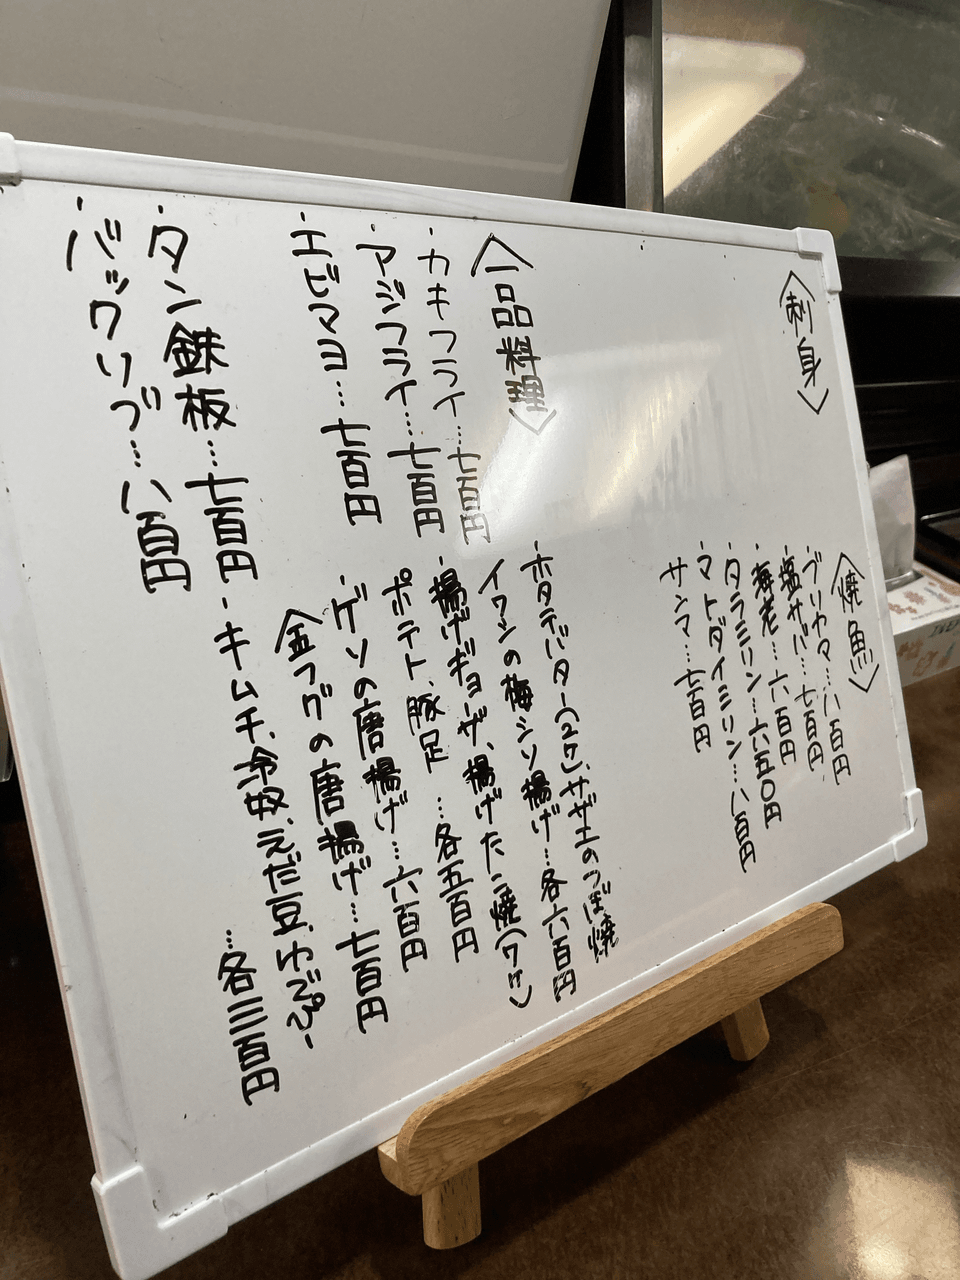 〈刺身〉
〈焼魚〉
・ブリカマ…八百円
・塩サバ…七百円
・海老…六百円
・タラミリン…六五〇円
・マトダイミリン…八百円
・サンマ…七百円
〈一品料理〉
・カキフライ…七百円
・アジフライ…七百円
・エビマヨ…七百円
・タン鉄板…七百円
・バックリブ…八百円
・ホタテバター(2ケ)、サザエのつぼ焼
イワシの梅シソ揚げ…各六百円
・揚げギョーザ、揚げたこ焼(7ケ)
ポテト、豚足…各五百円
・ゲソの唐揚げ…六百円
金フグの唐揚げ…七百円
・キムチ、冷奴、えだ豆、ゆでぴー
…各三百円